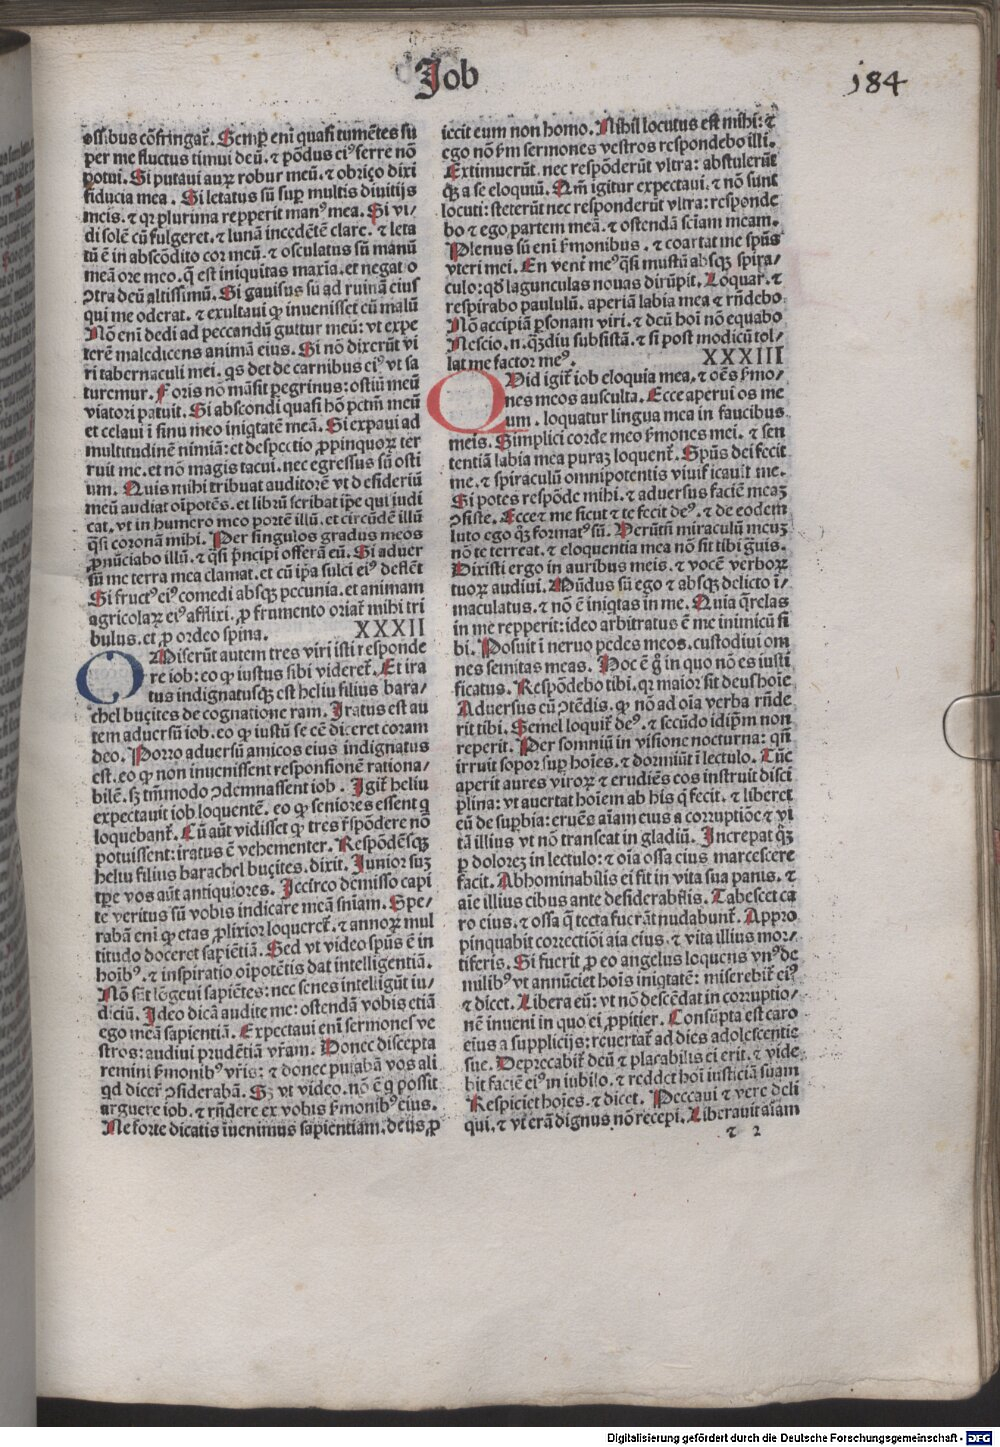 Job
184
ossibus cõfringat᷑. Semp̱ eni quasi tumẽtes su
per me fluctus timui deũ. ⁊ põdus ei⁹ ferre nõ
potui. Si putaui auꝝ robur meũ. ⁊ obriço dixi
fiducia mea. Si letatus sũ suꝑ multis diuitijs
meis. ⁊ qꝛ plurima repperit man⁹ mea. Si vi/
di solẽ cũ fulgeret. ⁊ lunã incedẽtẽ clare. ⁊ leta
tũ ẽ in abscõdito cor meũ. ⁊ osculatus sũ manũ
meã ore meo. q̃ est iniquitas maxĩa. et negatio
ꝯtra deũ altissimũ. Si gauisus sũ ad ruinã eius
qui me oderat. ⁊ exultaui ꝙ inuenisset eũ malũ
Nõ eni dedi ad peccandũ guttur meũ: vt expe
terẽ maledicens animã eius. Si nõ dixerũt vi
ri tabernaculi mei. q̃s det de carnibus ei⁹ vt sa
turemur. Foris nõ mãsit peregrinus: ostiũ meũ
viatori patuit. Si abscondi quasi hõ pctm̃ meũ
et celaui ĩ sinu meo iniq̃tatẽ meã. Si expaui ad
multitudinẽ nimiã: et despectio ꝓpinquoꝝ ter
ruit me. et nõ magis tacui. nec egressus sũ osti
um. Quis mihi tribuat auditorẽ vt desideriũ
meũ audiat oĩpotẽs. et librũ scribat ip̃e qui iudi
cat. vt in humero meo portẽ illũ. et circũdẽ illũ
q̃si coronam mihi. Per singulos gradus meos
ꝓnũciabo illũ. ⁊ q̃si prĩncipi offerã eũ. Si aduer
sũ me terra mea clamat. et cũ ip̃a sulci ei⁹ deflẽt
Si fruct⁹ ei⁹ comedi absqꝫ pecunia. et animam
agricolaꝝ ei⁹ afflixi. ꝓ frumento oriat᷑ mihi tri
bulus. et ꝓ ordeo spina. XXXII
OMiserũt autem tres viri isti responde
re iob: eo ꝙ iustus sibi videret᷑. Et ira
tus indignatusqꝫ est heliu filius bara/
chel buçites de cognatione ram. Iratus est au
tem aduersũ iob. eo ꝙ iustũ se eẽ diceret coram
deo. Porro aduersũ amicos eius indignatus
est. eo ꝙ non inuenissent responsionẽ rationa/
bilẽ. sꝫ tm̃modo ꝯdemnassent iob. Igit᷑ heliu
expectauit iob loquentẽ. eo ꝙ seniores essent q̃
loquebant᷑. Cũ aũt vidisset ꝙ tres r̃spõdere nõ
potuissent: iratus ẽ vehementer. Respõdẽsqꝫ
heliu filius barachel buçites. dixit. Junior suꝫ
tꝑe vos aũt antiquiores. Iccirco demisso capi
te veritus sũ vobis indicare meã sniam. Spe/
rabã eni ꝙ etas ꝓlixior loqueret᷑. ⁊ annoꝝ mul
titudo doceret sapiẽtiã. Sed vt video spũs ẽ in
hoĩb⁹. ⁊ inspiratio oĩpotẽtis dat intelligentiã.
Nõ sũt lõgeui sapiẽtes: nec senes intelligũt iu/
diciũ. Ideo dicã audite me: ostendã vobis etiã
ego meã sapientiã. Expectaui eni sermones ve
stros: audiui prudẽtiã vr̃am. Donec discepta
remini ßmonib⁹ vr̃is: ⁊ donec putabã vos ali
qd dicer̃ ꝯsiderabã. Sꝫ vt video. nõ ẽ q̃ possit
arguere iob. ⁊ rñdere ex vobis ßmonib⁹ eius.
Ne forte dicatis ĩuenimus sapientiam. deijs ꝓ
iecit eum non homo. Nihil locutus est mihi: ⁊
ego nõ ßm sermones vestros respondebo illi.
Extimuerũt. nec respõderũt vltra: abstulerũt
qꝫ a se eloquiũ. Qm̃ igitur expectaui. ⁊ nõ sunt
locuti: steterũt nec responderũt vltra: responde
bo ⁊ ego partem meã. ⁊ ostendã sciam meam.
Plenus sũ eni ßmonibus. ⁊ coartat me spũs
vteri mei. En vent᷑ me⁹ q̃si mustũ absqꝫ spira/
culo: qd̃ lagunculas nouas dirũpit. Loquar. ⁊
respirabo paululũ. aperiã labia mea ⁊ rñdebo
Nõ accipiã ꝑsonam viri. ⁊ deũ hoĩ nõ equabo
Nescio .n. qꝫdiu subsistã. ⁊ si post modicũ tol/
lat me factor me⁹. XXXIII
QVid igit᷑ iob eloquia mea. ⁊ oẽs ßmo/
nes meos ausculta. Ecce aperui os me
um. loquatur lingua mea in faucibus
meis. Simplici corde meo ßmones mei. ⁊ sen
tentiã labia mea puraꝫ loquent᷑. Spũs dei fecit
me. ⁊ spiraculũ omnipotentis viuificauit me.
Si potes respõde mihi. ⁊ aduersus faciẽ meaꝫ
ꝯsiste. Ecce ⁊ me sicut ⁊ te fecit de⁹. ⁊ de eodem
luto ego qꝫ format⁹ sũ. Verũtñ miraculũ meuꝫ
nõ te terreat. ⁊ eloquentia mea nõ sit tibi g̃uis.
Dixisti ergo in auribus meis. ⁊ vocẽ verboꝝ
tuoꝝ audiui. Mũdus sũ ego ⁊ absqꝫ delicto ĩ/
maculatus. ⁊ nõ ẽ iniq̃tas in me. Quia q̃relas
in me repperit: ideo arbitratus ẽ me inimicũ si
bi. Posuit ĩ neruo pedes meos. custodiui om
nes semitas meas. Hoc ẽ g̃ in quo nõ es iusti
ficatus. Respõdebo tibi. qꝛ maior sit deus hoĩe
Aduersus eũ ꝯtẽdis. ꝙ nõ ad oĩa verba rñde
rit tibi. Semel loquit᷑ de⁹. ⁊ secũdo idip̃m non
reperit. Per somniũ in visione nocturna: qñ
irruit sopor suꝑ hoĩes. ⁊ dormiũt ĩ lectulo. Tũc
aperit aures viroꝝ ⁊ erudiẽs eos instruit disci
plina: vt auertat hoĩem ab his q̃ fecit. ⁊ liberet
eũ de suꝑbia: eruẽs aĩam eius a corruptiõe ⁊ vi
tã illius vt nõ transeat in gladiũ. Increpat qꝫ
ꝑ doloreꝫ in lectulo: ⁊ oĩa ossa eius marcescere
facit. Abhominabilis ei fit in vita sua panis. ⁊
aĩe illius cibus ante desiderabilis. Tabescet ca
ro eius. ⁊ ossa q̃ tecta fuerãt nudabunt᷑. Appro
pinquabit corrẽctiõi aĩa eius. ⁊ vita illius mor/
tiferis. Si fuerit ꝓ eo angelus loquens vn⁹ de
milib⁹ vt annũciet hoĩs iniq̃tatẽ: miserebit᷑ ei⁹
⁊ dicet. Libera eũ: vt nõ descẽdat in corruptio/
nẽ inueni in quo ei ꝓpitier. Consũpta est caro
eius a supplicijs: reuertat᷑ ad dies adolescentie
sue. Deprecabit᷑ deũ ⁊ placabilis ei erit. ⁊ vide
bit faciẽ ei⁹ in iubilo. ⁊ reddet hoĩ iusticiã suam
Respiciet hoĩes. ⁊ dicet. Peccaui ⁊ vere deli
qui. ⁊ vt erã dignus nõ recepi. Liberauit aĩam
⁊ 2
Digitalisierung gefördert durch die Deutsche Forschungsgemeinschaft - DFG